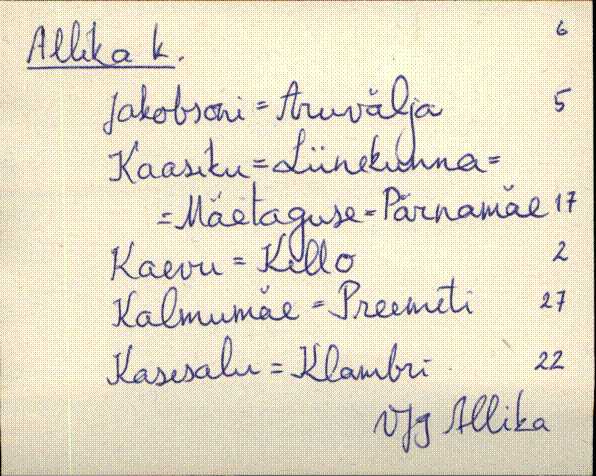 6
Allika k.
Jakobsoni = Aruvälja 5
Kaasiku = Liinekunna =
= Mäetaguse = Pärnamäe 17
Kaevu = Killo 2
Kalmumäe = Preemeti 27
Kasesalu = Klambri 22
VJg Allika